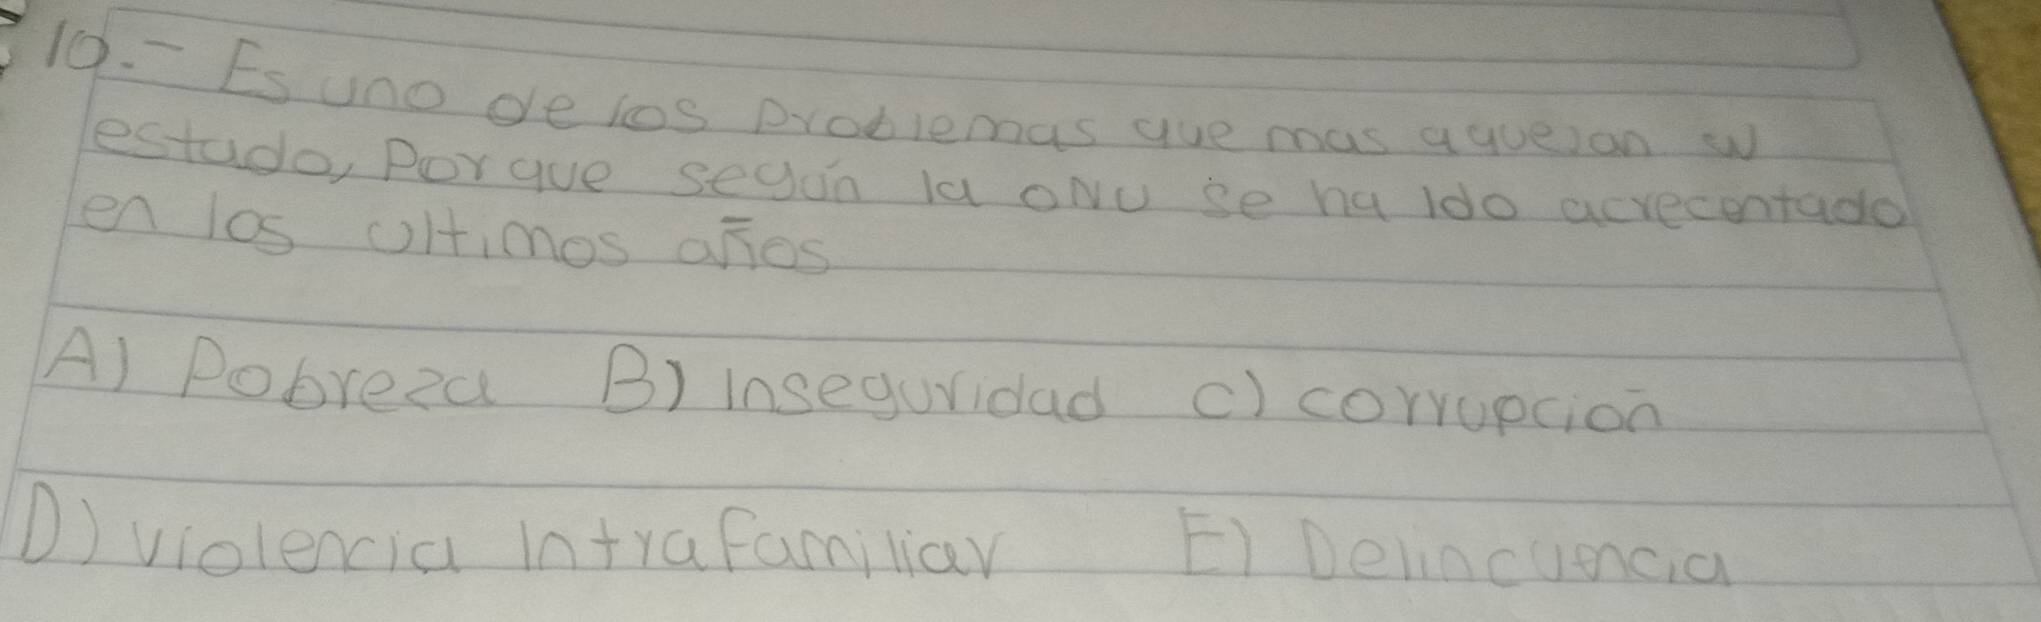 10.- Es uno de los problemas que mas aquejan
estado, Por que según la ONU se ha ido acrecentado
en los ultimos años
A) Pobreza B) Inseguridad C) corrupción
D) violencia Intrafamiliar E) Delincuencia